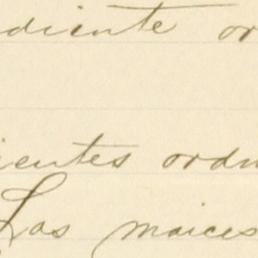 diente or
ientes ordin
Las maices